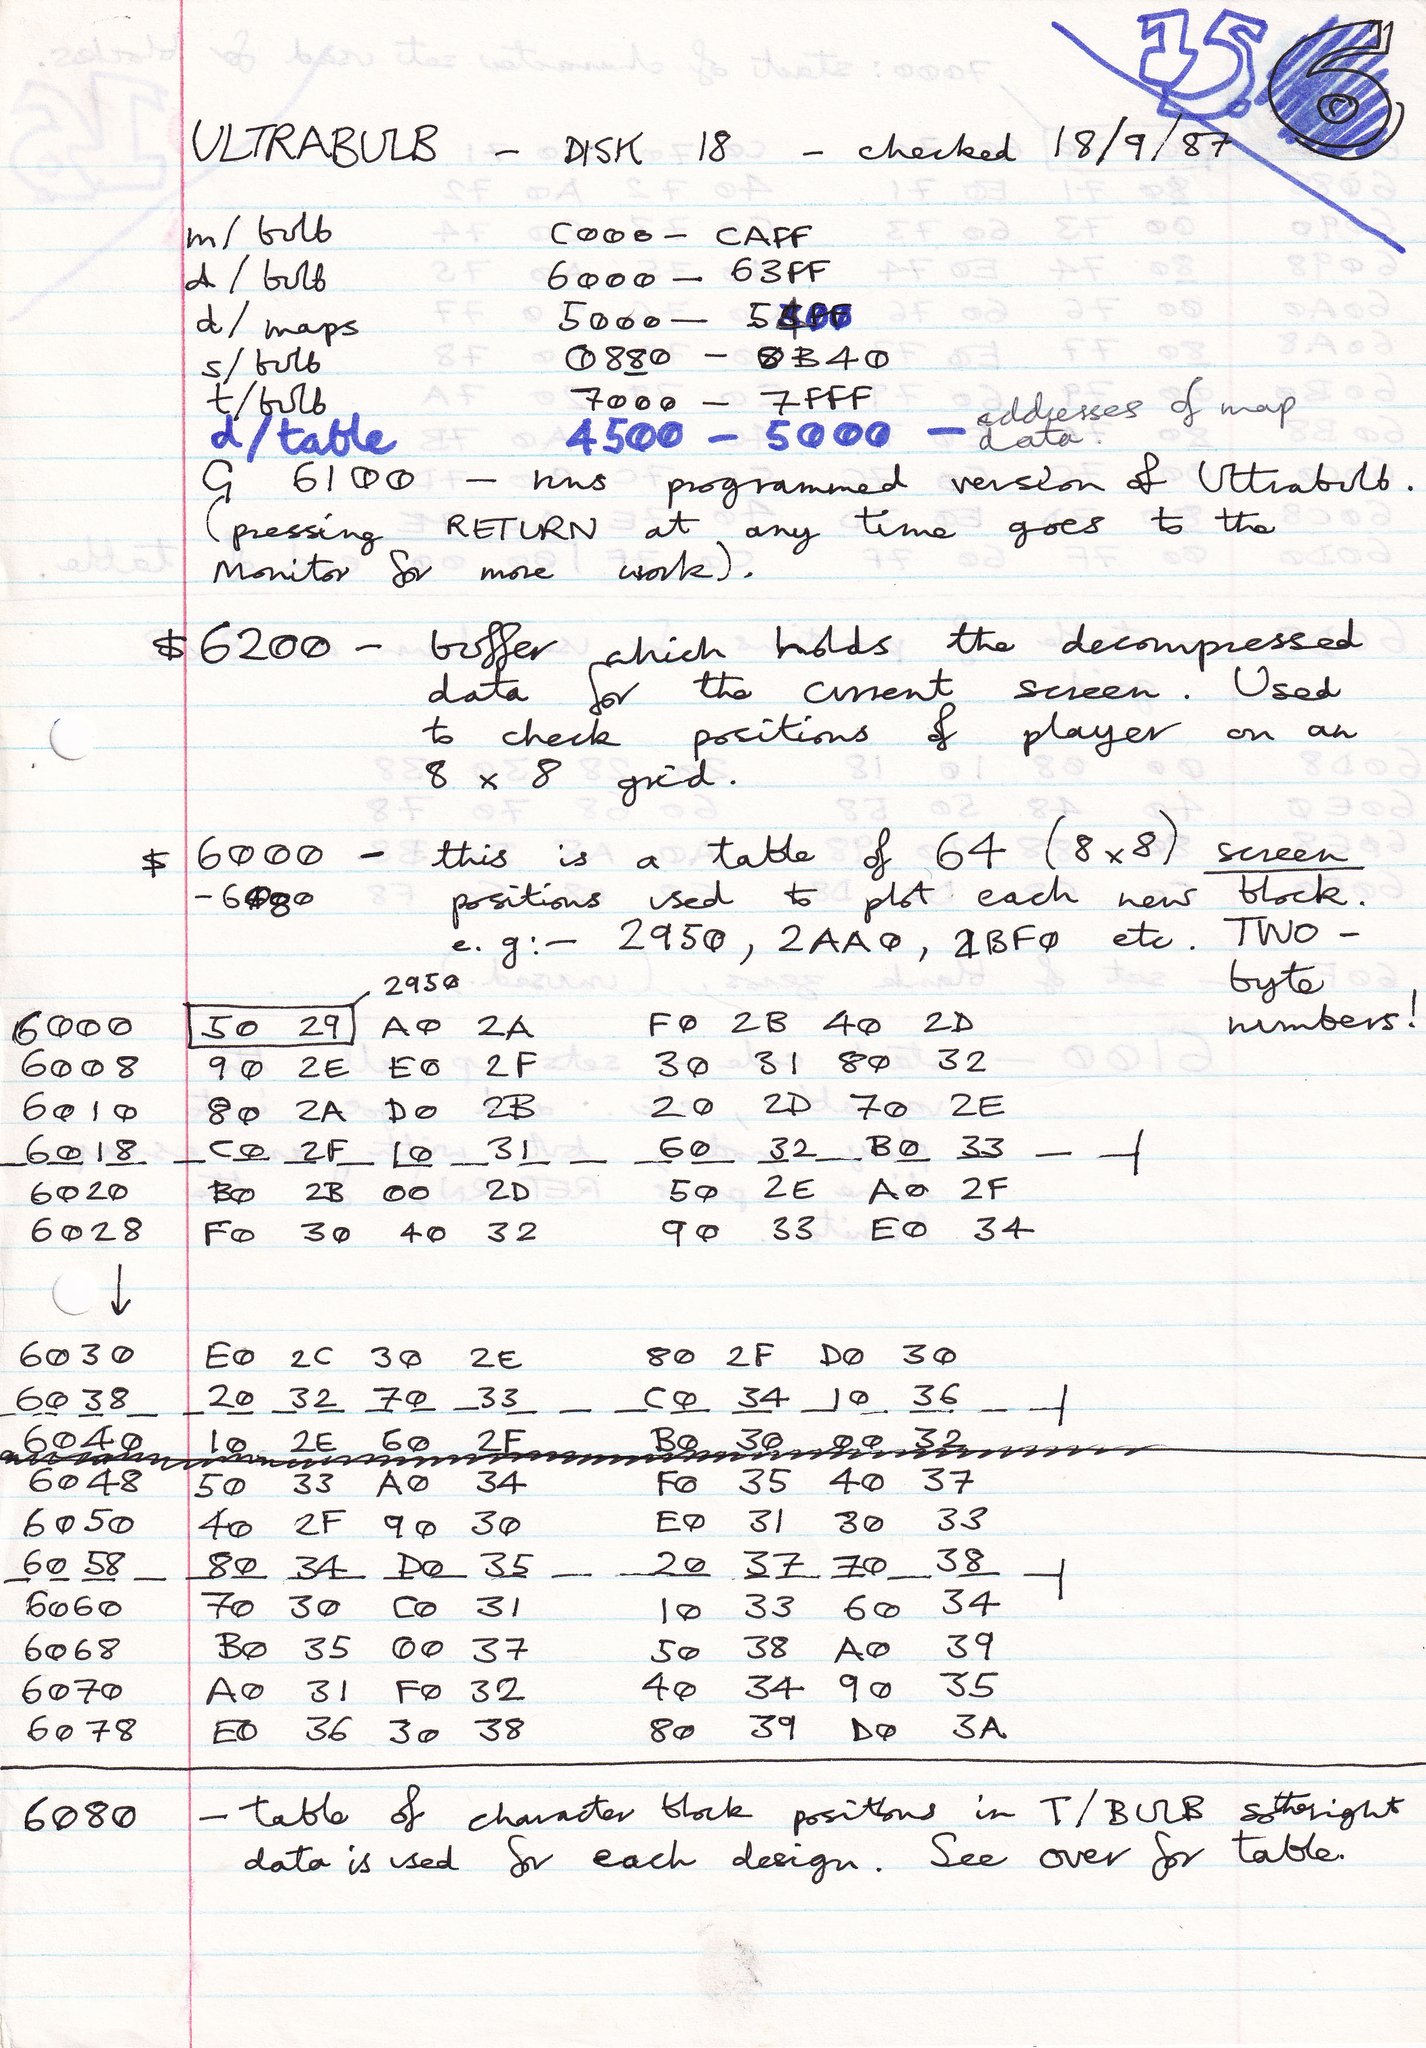 15 6
ULTRABULB - DISK 18 - checked 18/9/87
m/bulb C000 - CAFF
d/bulb 6000 - 63FF
d/maps 5000 -
s/bulb 0880 - 8B40
t/bulb 7000 - 7FFF
d/table 4500 - 5000 - addresses of map
data.
G 6100 - runs programmed version of Ultrabulb.
(pressing RETURN at any time goes to the
Monitor for more work).
$6200 - buffer which holds the decompressed
data for the current screen. Used
to check positions of player on an
8 x 8 grid.
$6000 - this is a table of 64 (8x8) screen
-6080 positions used to plot each new block.
e.g:- 2950, 2AA0, 2BF0 etc. TWO -
byte
numbers!
2950
6000 50 29 A0 2A F0 2B 40 2D
6008 90 2E E0 2F 30 31 80 32
6010 80 2A D0 2B 20 2D 70 2E
6018 C0 2F 10 31 60 32 B0 33
6020 B0 2B 00 2D 50 2E A0 2F
6028 F0 30 40 32 90 33 E0 34
6030 E0 2C 30 2E 80 2F D0 30
6038 20 32 70 33 C0 34 10 36
6040 10 2E 60 2F B0 30 00 32
6048 50 33 A0 34 F0 35 40 37
6050 40 2F 90 30 E0 31 30 33
6058 80 34 D0 35 20 37 70 38
6060 70 30 C0 31 10 33 60 34
6068 B0 35 00 37 50 38 A0 39
6070 A0 31 F0 32 40 34 90 35
6078 E0 36 30 38 80 39 D0 3A
6080 - table of character block positions in T/BULB so the right
data is used for each design. See over for table.